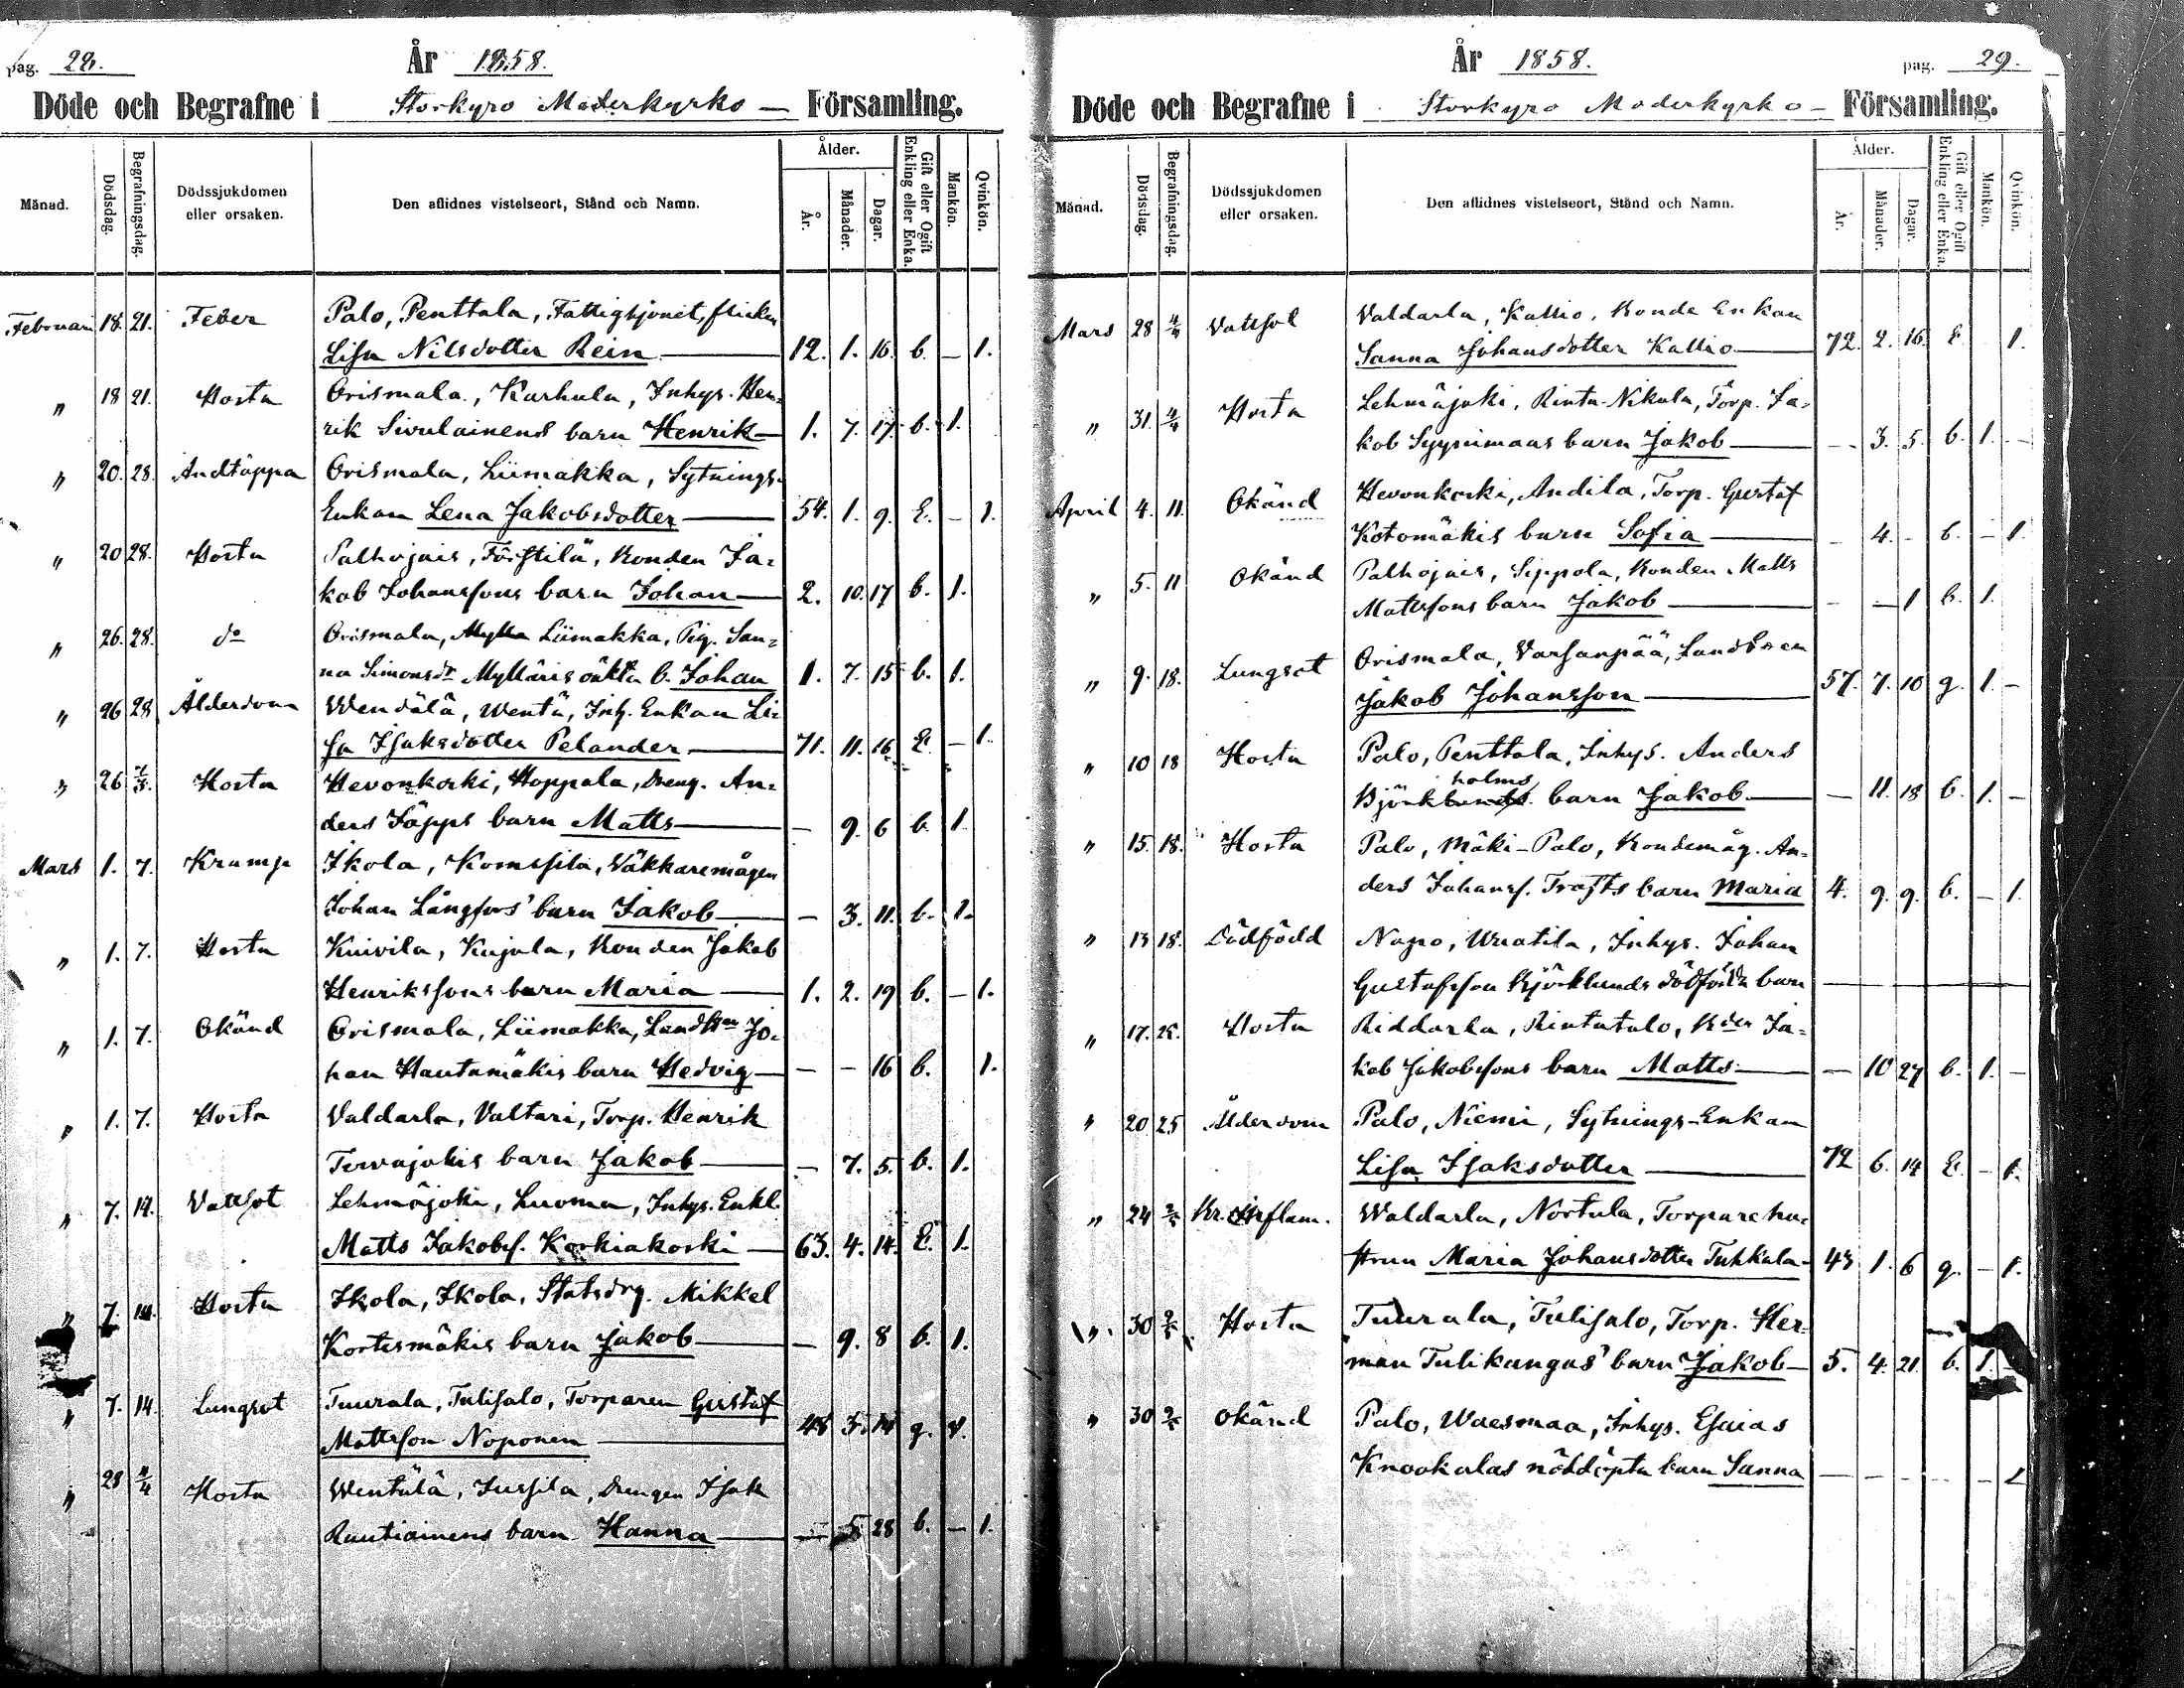 pag. 28.
År 1858.
Döde och Begrafne i Storkyro Moderkyrko - Församling.
Månad.
Dödsdag.
Begrafningsdag.
Dödssjukdomen eller orsaken.
Den aflidnes vistelseort, Stånd och Namn.
Ålder.
År.
Månader.
Dagar.
Gift eller Ogift Enkling eller Enka.
Mankön.
Qvinkön.
Februari 18. 21. Feber Palo, Penttala, Fattighjonet, flickan
Lisa Nilsdotter Rein 12. 1. 16. b. - 1.
" 18 21. Hosta Orismala, Karhula, Inhys. Hen-
rik Sivulainens barn Henrik 1. 7. 17. b. 1.
" 20. 28. Andtäppa Orismala, Liimakka, Sytnings-
Enkan Lena Jakobsdotter 54. 1. 9. E. - 1.
" 20 28. Hosta Palhojais, Förstilä, Bonden Ja-
kob Johanssons barn Johan 2. 10. 17 b. 1.
" 26. 28. do Orismala, Liimakka, Pig. San-
na Simonsdr Myllaris oäkta b. Johan 1. 7. 15 b. 1.
" 26 28 Ålderdom Wendälä, Wentä, Inh. Enkan Li-
sa Isaksdotter Pelander 71. 11. 16 E. - 1.
" 26 7/3. Hosta Hevonkoski, Hoppala, Dreng. An-
ders Jäpps barn Matts - 9. 6 b. 1
Mars 1. 7. Kramp Ikola, Komssila, Väkkaremågen
Johan Långfors' barn Jakob - 3. 11. b. 1.
" 1. 7. Hosta Kuivila, Kujala, Bonden Jakob
Henrikssons barn Maria 1. 2. 19 b. - 1.
" 1. 7. Okänd Orismala, Liimakka, Landben Jo-
han Hautamäkis barn Hedvig - - 16 b. 1.
" 1. 7. Hosta Valdarla, Valtari, Torp. Henrik
Tervajokis barn Jakob - 7. 5. b. 1.
" 7. 14. Vattsot Lehmäjoki, Luoma, Inhys. Enkl.
Matts Jakobs. Korkiakoski 63. 4. 14. E. 1.
" 7. 14. Hosta Ikola, Ikola, Statsdrg. Mikkel
Kortesmäkis barn Jakob - 9. 8 b. 1.
" 7. 14. Lungsot Tuurala, Tulisalo, Torparen Gustaf
Mattsson Noponen 48 5. 14 g. 1.
" 28 4/4 Hosta Wentälä, Jussila, Drengen Isak
Rautiainens barn Hanna - 5 28 b. - 1.
År 1858.
pag. 29.
Döde och Begrafne i Storkyro Moderkyrko - Församling.
Månad.
Dödsdag.
Begrafningsdag.
Dödssjukdomen eller orsaken.
Den aflidnes vistelseort, Stånd och Namn.
Ålder.
År.
Månader.
Dagar.
Gift eller Ogift Enkling eller Enka.
Mankön.
Qvinkön.
Mars 28 4/4 Vattsot Valdarla, Kallio, Bonde Enkan
Sanna Johansdotter Kallio 72. 2. 16. E. 1.
" 31. 4/4 Hosta Lehmäjoki, Rinta-Nikula, Torp. Ja-
kob Syynimaas barn Jakob - 3. 5. b. 1. -
April 4. 11. Okänd Hevonkoski, Andila, Torp. Gustaf
Kotomäkis barn Sofia - 4. - b. - 1.
" 5. 11 Okänd Palhojais, Seppola, Bonden Matts
Mattssons barn Jakob - - 1 b. 1.
" 9. 18. Lungsot Orismala, Varsanpää, Landben
Jakob Johansson 57. 7. 10 g. 1. -
" 10 18 Hosta Palo, Penttala, Inhys. Anders
Björkholms barn Jakob - 11. 18 b. 1. -
" 15. 18. Hosta Palo, Mäki-Palo, Bondemåg. An-
ders Johans. Trasts barn Maria 4. 9. 9. b. - 1.
" 13 18. Dödfödd Napo, Wuatila, Inhys. Johan
Gustafsson Björklunds dödfödda barn -
" 17. 25. Hosta Riddarla, Rintatalo, Bden Ja-
kob Jakobssons barn Matts - 10 27 b. 1. -
" 20 25 Ålderdom Palo, Niemi, Sytnings-Enkan
Lisa Isaksdotter 72 6. 14 E. - 1.
" 24 2/5 Walda­rla, Nortula, Torparehu-
strun Maria Johansdotter Tuhkala 43 1. 6 g. - 1.
" 30 2/5 Hosta Tuurala, Tulisalo, Torp. Her-
man Tulikangas' barn Jakob 5. 4. 21. b. 1. -
" 30 2/5 Okänd Palo, Waesmaa, Inhys. Esaias
Knookalas nöddöpta barn Sanna - - - - 1